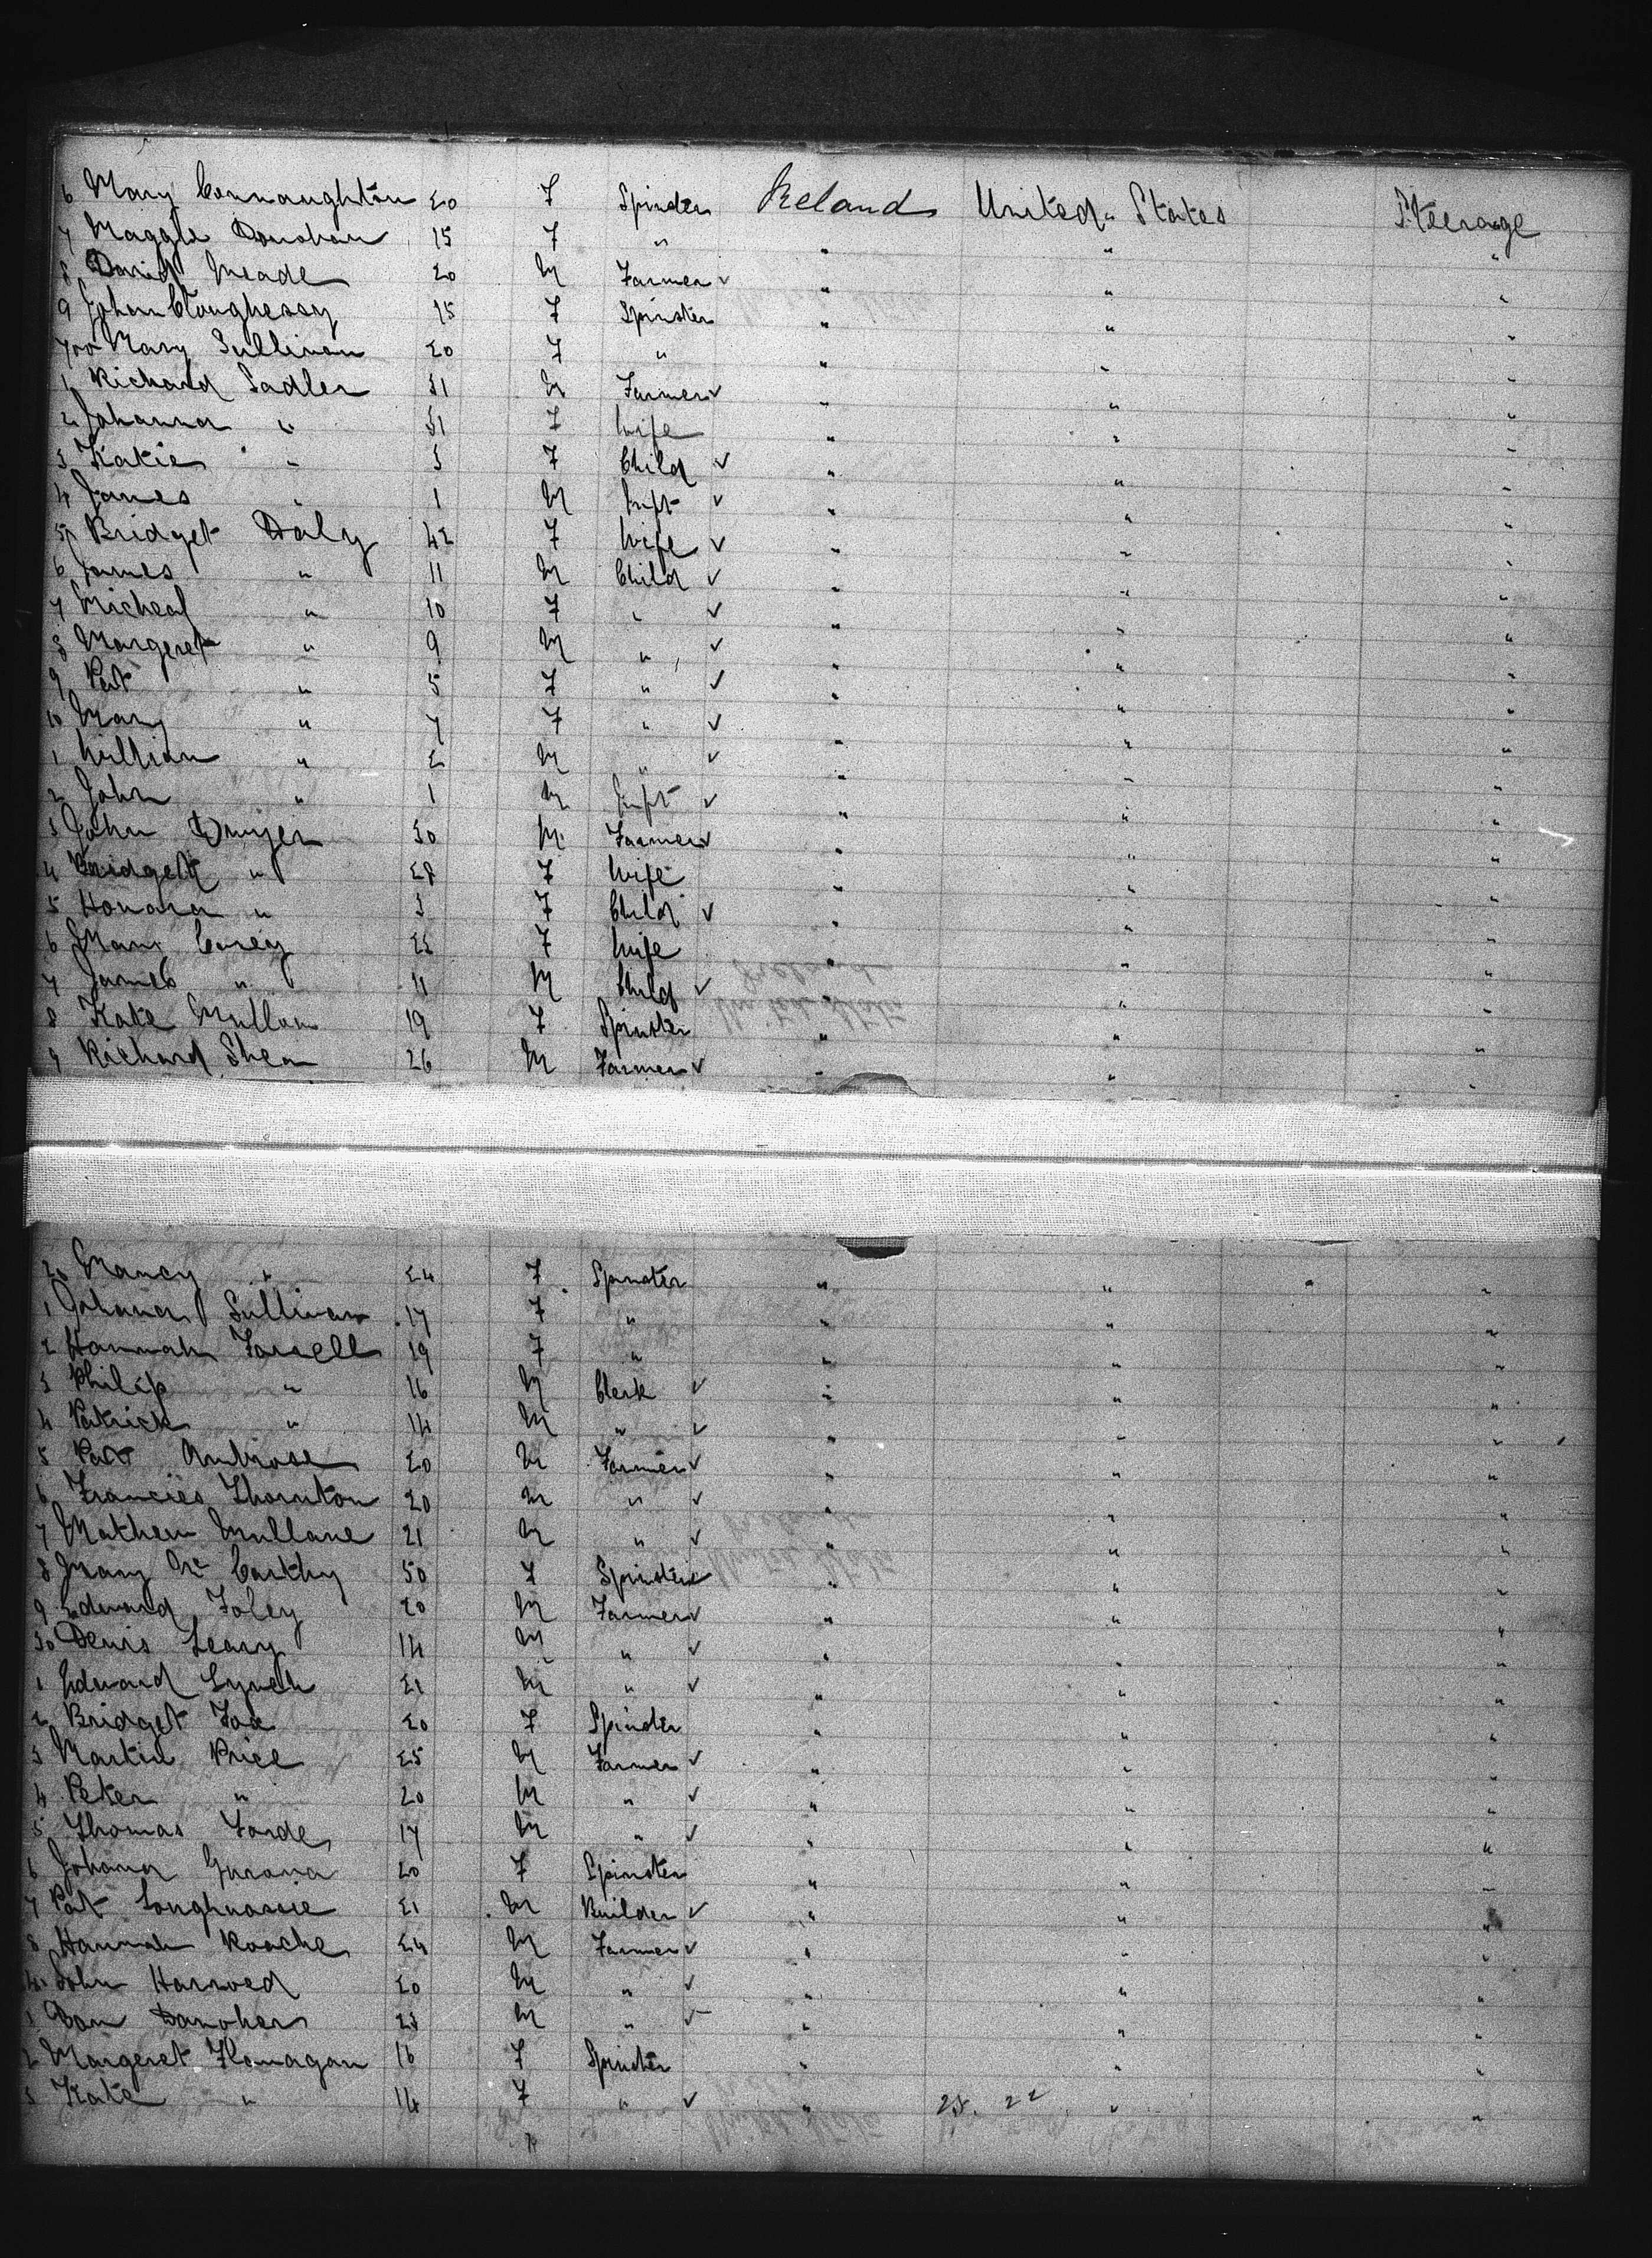 6 Mary Connaughton 20 F Spinster Ireland United States Steerage
7 Maggie Donohan 15 F " " " "
8 David Meade 20 M Farmer ✓ " " "
9 Johan Cloughessy 15 F Spinster " " "
700 Mary Sullivan 20 F " " " "
1 Richard Sadler 31 M Farmer ✓ " " "
2 Johanna " 31 F Wife " " "
3 Katie " 3 F Child ✓ " " "
4 James " 1 M Inft ✓ " " "
5 Bridget Daly 42 F Wife ✓ " " "
6 James " 11 M Child ✓ " " "
7 Micheal " 10 F " ✓ " " "
8 Margeret " 9 M " ✓ " " "
9 Pat " 5 F " ✓ " " "
10 Mary " 7 F " ✓ " " "
1 William " 2 M " ✓ " " "
2 John " 1 M Inft ✓ " " "
3 John Dwyer 30 M Farmer ✓ " " "
4 Bridget " 28 F Wife " " "
5 Honara " 3 F Child ✓ " " "
6 Mary Carey 22 F Wife " " "
7 James " 11 M Child ✓ " " "
8 Kate Mullan 19 F Spinster " " "
9 Richard Shea 26 M Farmer ✓ " " "
20 Nancy " 24 F Spinster " " "
1 Johana Sullivan 17 F " " " "
2 Hannah Farrell 19 F " " " "
3 Philip " 16 M Clerk ✓ " " "
4 Patrick " 14 M " ✓ " " "
5 Patt Ambrose 20 M Farmer ✓ " " "
6 Francies Thornton 20 M " ✓ " " "
7 Mathew Mullane 21 M " ✓ " " "
8 Mary Mc Carthy 50 F Spinster ✓ " " "
9 Edward Foley 20 M Farmer ✓ " " "
30 Denis Leary 14 M " ✓ " " "
1 Edward Lynch 21 M " ✓ " " "
2 Bridget Fox 20 F Spinster " " "
3 Martin Price 25 M Farmer ✓ " " "
4 Peter " 20 M " ✓ " " "
5 Thomas Forde 17 M " ✓ " " "
6 Johana 20 F Spinster " " "
7 Pat 21 M Builder ✓ " " "
8 Hannah Roache 24 M Farmer ✓ " " "
John 20 M " ✓ " " "
1 Dan Danoher 23 M " ✓ " " "
2 Margeret Flanagan 16 F Spinster " " "
3 Kate " 14 F " ✓ " " "